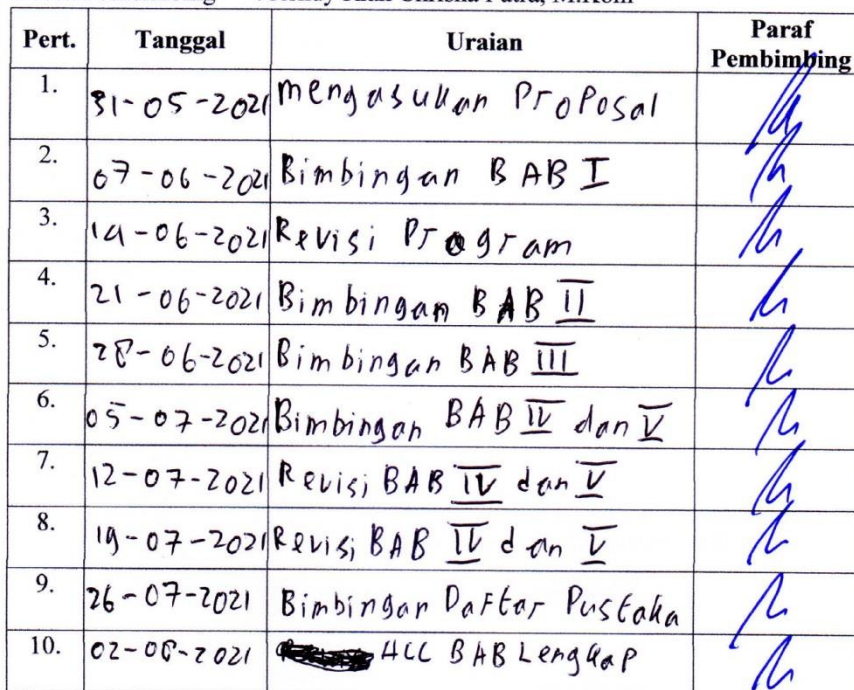 Pert. Tanggal Uraian Paraf Pembimbing
1. 31-05-2021 mengasukan Proposal
2. 07-06-2021 Bimbingan BAB I
3. 14-06-2021 Revisi Program
4. 21-06-2021 Bimbingan BAB II
5. 28-06-2021 Bimbingan BAB III
6. 05-07-2021 Bimbingan BAB IV dan V
7. 12-07-2021 Revisi BAB IV dan V
8. 19-07-2021 Revisi BAB IV dan V
9. 26-07-2021 Bimbingan Daftar Pustaka
10. 02-08-2021 ACC BAB Lengkap